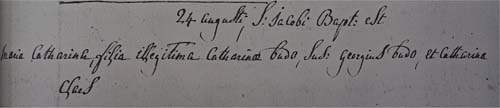 24 augusti, S: Jacobi Bapt: est
maria Catharina filia illegitima Catharinæ budo, Sus: georgius budo, et Catharina
Claes